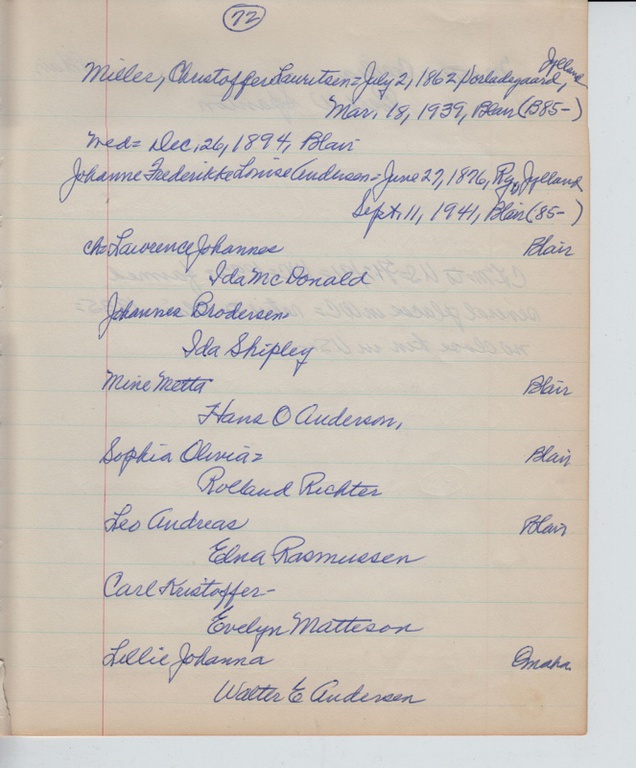 72
Miller, Christoffer Lauritsen = July 2, 1862, Jylland
Mar. 18, 1939, Blair (B85-)
wed = Dec, 26, 1894, Blair
Johanne Frederikke Louise Andersen = June 27, 1876, Ry, Jylland
Sept. 11, 1941, Blair (85-)
ch = Lawrence Johannes Blair
Ida McDonald
Johannes Brodersen =
Ida Shipley
Mine Metta Blair
Hans O Anderson,
Sophia Olivia = Blair
Rolland Richter
Leo Andreas Blair
Edna Rasmussen
Carl Kristoffer -
Evelyn Matteson
Lillie Johanna Omaha
Walter E Andersen